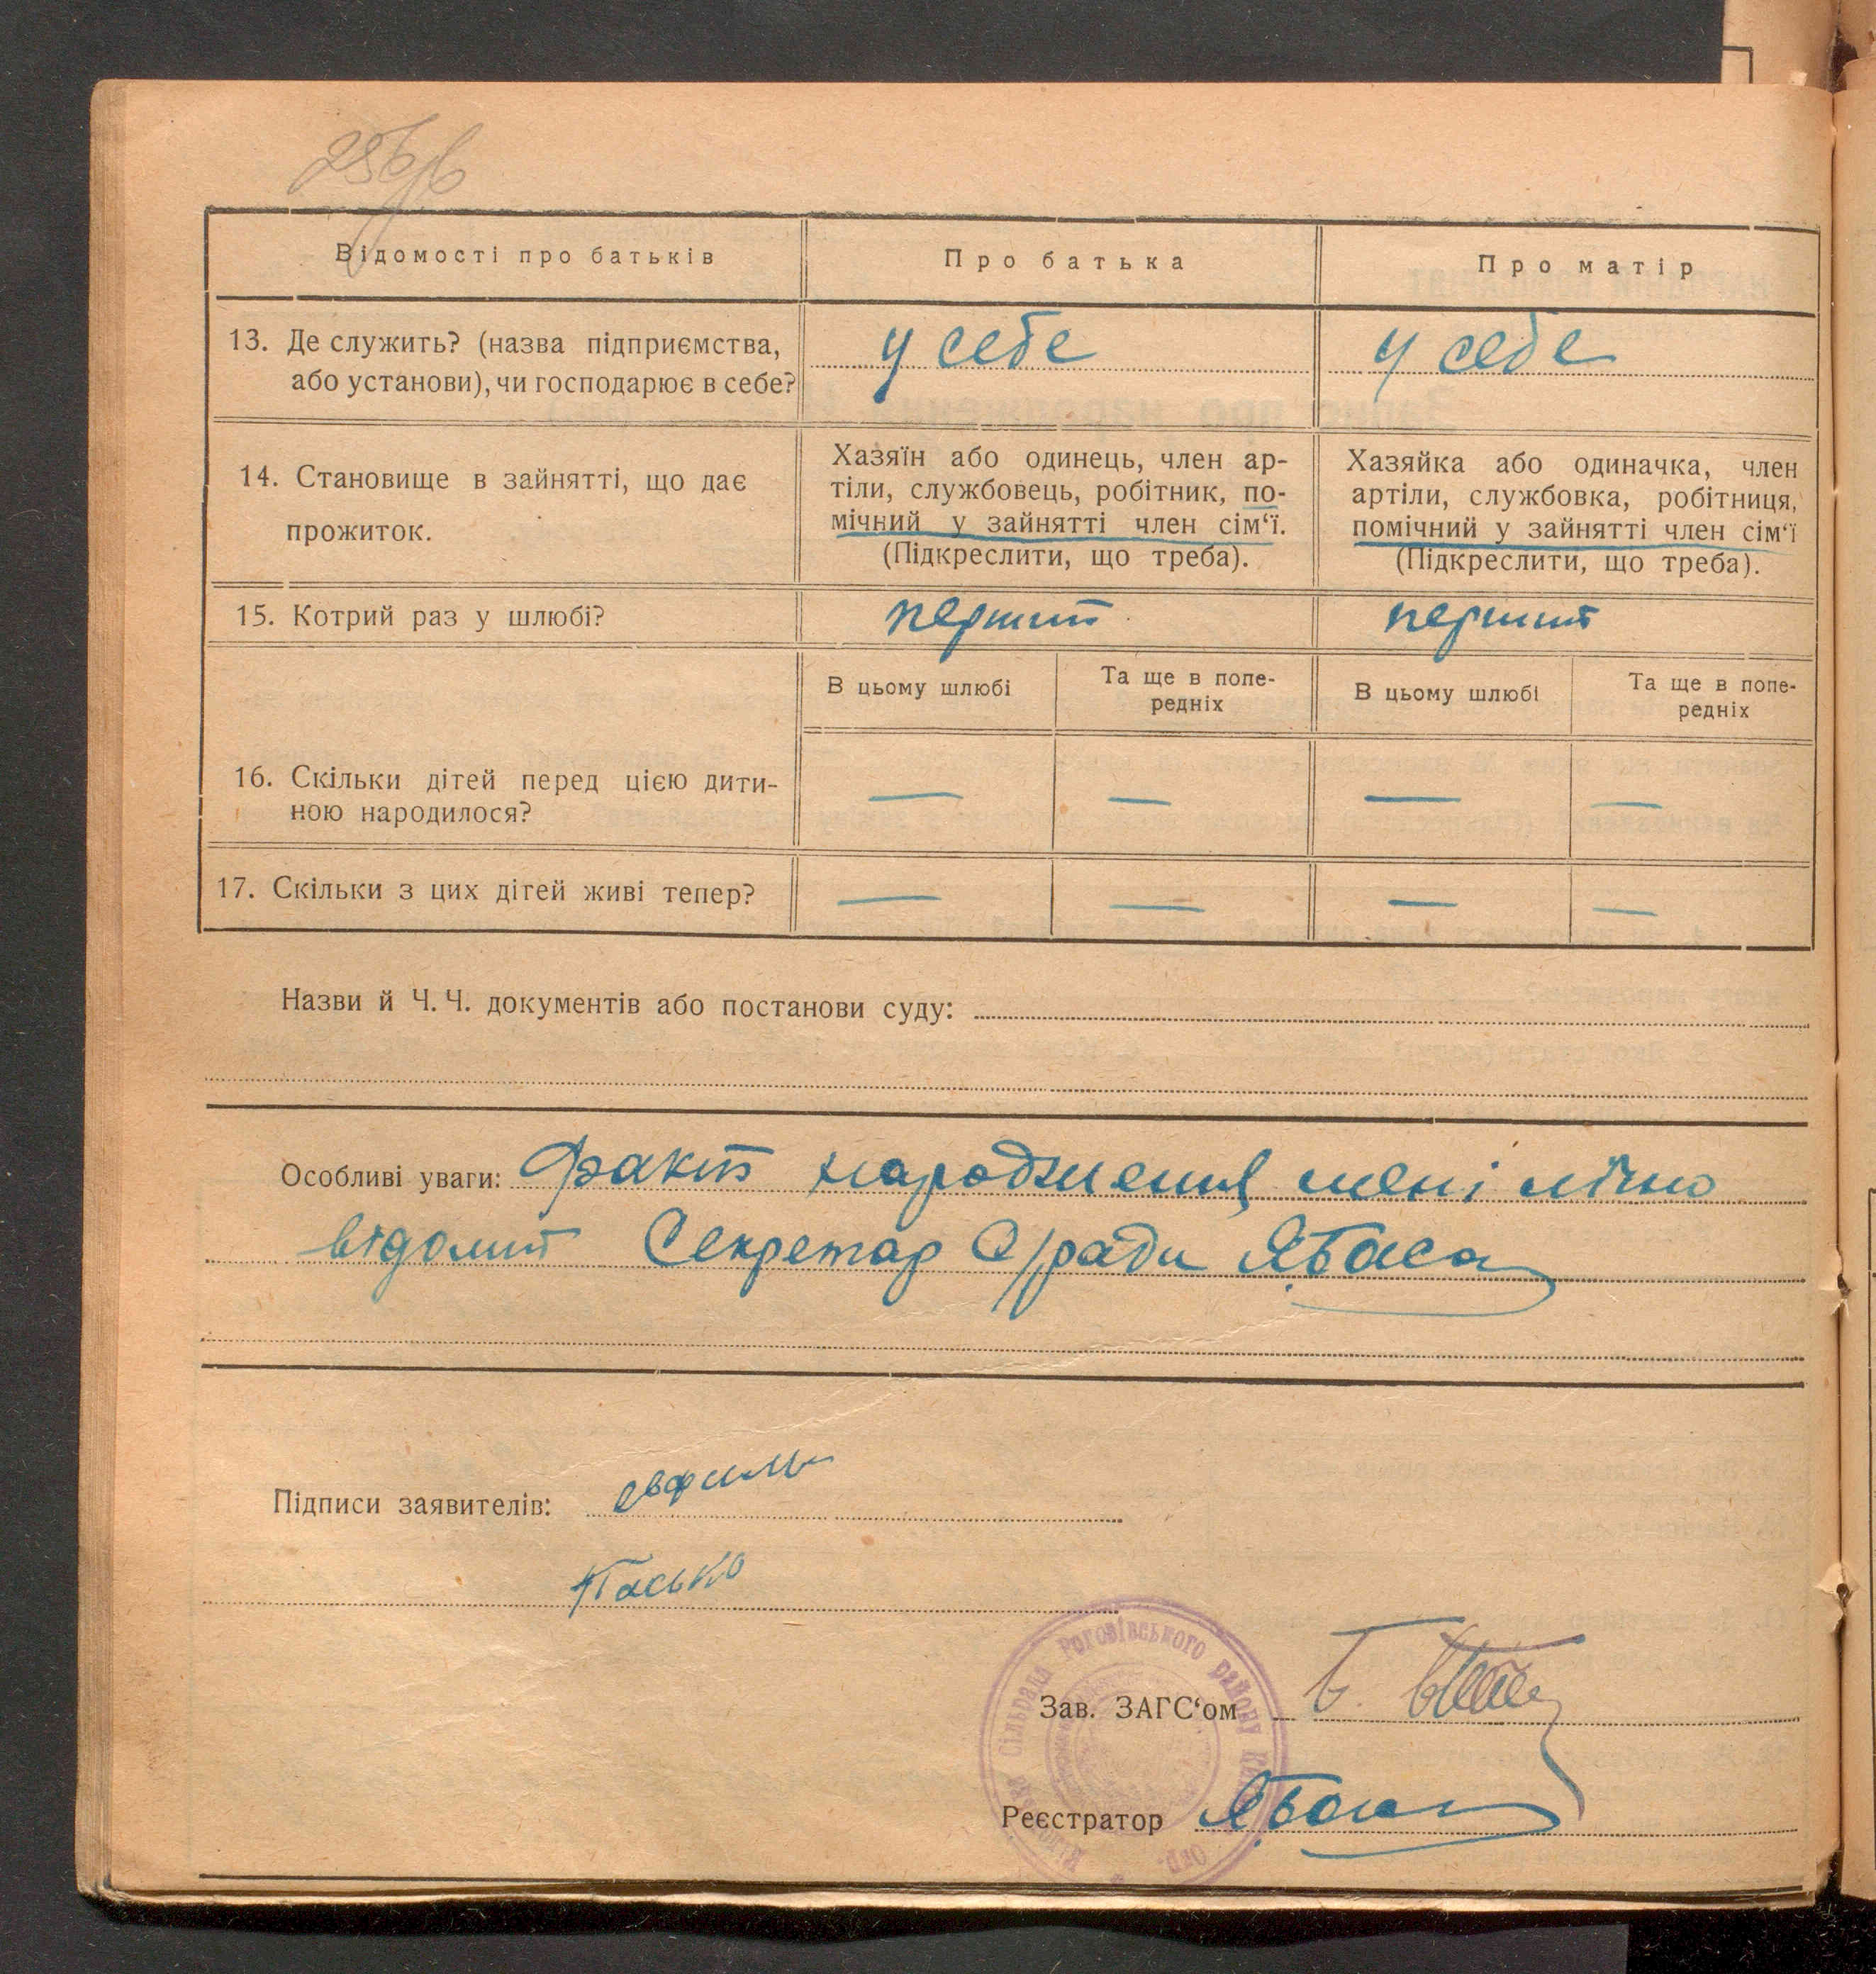 Відомості про батьків
Про батька
Про матір
13. Де служить? (назва підприємства,
або установи), чи господарює в себе?
у себе
у себе
14. Становище в зайнятті, що дає
прожиток.
Хазяїн або одинець, член ар-
тіли, службовець, робітник, по-
мічний у зайнятті член сім‘ї.
(Підкреслити, що треба).
Хазяйка або одиначка, член
артіли, службовка, робітниця,
помічний у зайнятті член сім‘ї
(Підкреслити, що треба).
15. Котрий раз у шлюбі?
перший
перший
В цьому шлюбі
Та ще в попе-
редніх
В цьому шлюбі
Та ще в попе-
редніх
16. Скільки дітей перед цією дити-
ною народилося?
— — — —
17. Скільки з цих дітей живі тепер?
— — — —
Назви й Ч. Ч. документів або постанови суду:
Особливі уваги: Факт народження мені лічно
відомий Секретар С/ради
Підписи заявителів:
Тасько
Сільрада Роговівського району
Зав. ЗАГС‘ом
Реєстратор